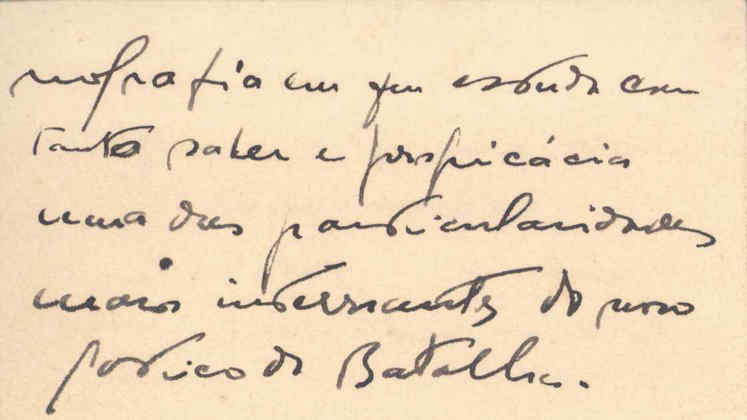 nografia em que estuda com
tanto saber e perspicácia
uma das particularidades
mais interessantes do
da Batalha.